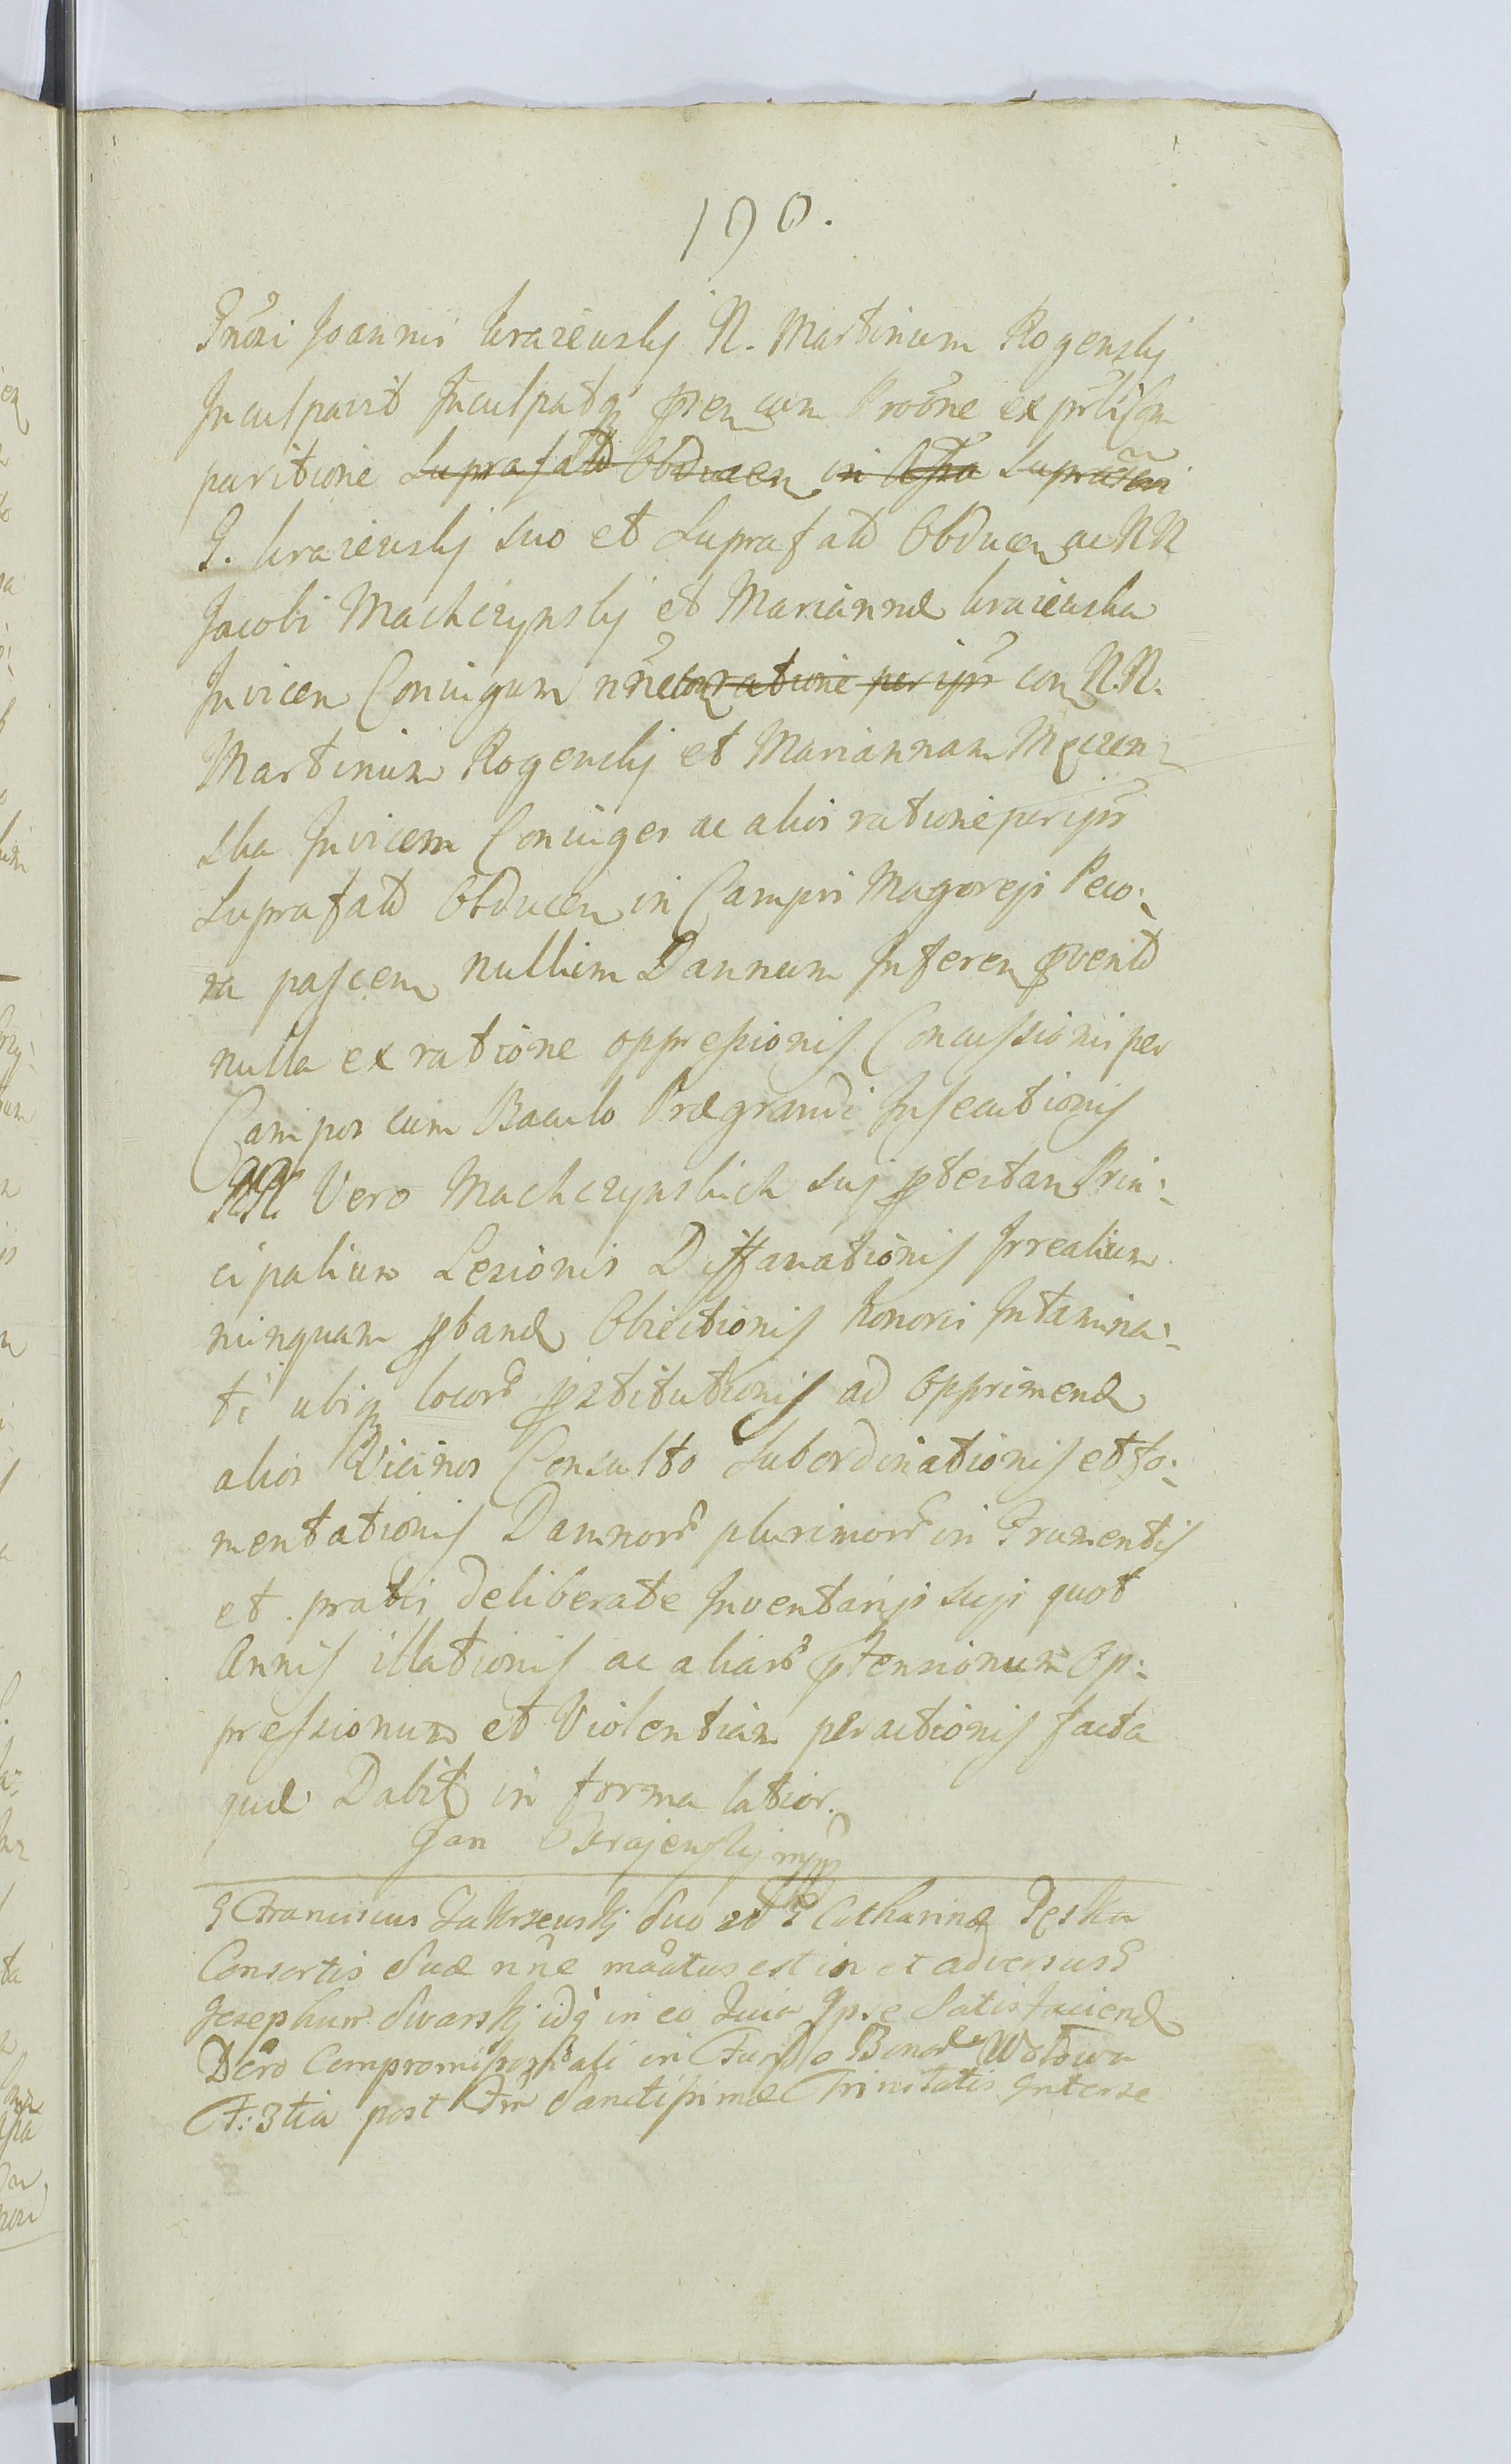 190.
Gnosi Joannis Kraiewskj N. Martinum Rogenskj
Inculpavit Inculpatq pren cum Protone ex prtis com
paritione Suprafatd Obducen in Assa Suprasen
G. Kraiewskj suo et Suprafatd Obducen ac NN
Jacobi Machczynskj et Mariannæ Kraiewska
Invicem Coniugum nne con ratione per ips con N.N.
Martinum Rogenskj et Mariannam Męczen
ska Invicem Coniuges ac alios ratione per ips
Suprafatd Obducen in Campis Magorejs Peco:
ra pascen nullum Damnum Inferen pvenitd
nulla ex ratione oppressionis Concussionis per
Campos cum Baculo Prægrandi Insecutionis
NN. Vero Machczynskich suj ptestan Prin:
cipalium Lezionis Diffamationis Irrealium
nunquam pband Obiectionis honoris Intamina:
ti ubiq locor pstitutionis ad opprimend
alios Vicinos Consulto Subordinationis et fo:
mentationis Damnor plurimor in Frumentis
et pratis deliberate Inventarijs sujs quot
Annis illationis ac aliar ptensionum op:
pressionum et Violentiam peractionis facta
quæ Dabit in forma latior.
Jan Krajewskj mpp
G Franciscus Zakrzewskj suo et G Catharinæ Pęska
Consortis Suæ nne maatus est in et adversus G
Josephum Swarskj idq in eo Quia Ipse Satisfaciend
Dcro Compromissorali in Fundo Bonor Wolowa
F: 3tia post Fm Sanctissimæ Trinitatis Interse